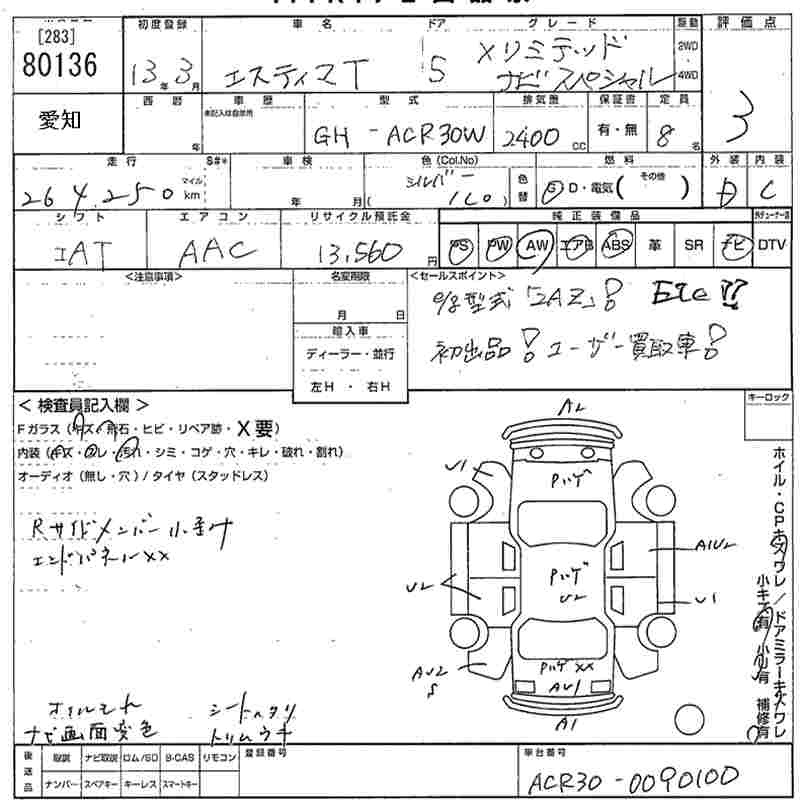 [283]
80136
初度登録
13年 3月
車名
エスティマT
ドア
5
グレード
Xリミテッド
ナビスペシャル
駆動
2WD
4WD
評価点
3
愛知
西暦
年
車歴
未記入は自家用
型式
GH - ACR30W
排気量
2400 CC
保証書
有・無
定員
8 名
走行
264,250 マイル km
S#*
車検
年 月
色 (Col.No)
シルバー
( 1C0 )
色替
燃料
G D・電気 ( その他 )
外装
D
内装
C
シフト
IAT
エアコン
AAC
リサイクル預託金
13,560 円
純正装備品
PS PW AW エアB ABS 革 SR ナビ DTV
<注意事項>
名変期限
月 日
輸入車
ディーラー・並行
左H・右H
<セールスポイント>
e/g型式「2AZ」! Etc !!
初出品! ユーザー買取車!
< 検査員記入欄 >
Fガラス (キズ・飛石・ヒビ・リペア跡・X要)
内装 (キズ・スレ・汚れ・シミ・コゲ・穴・キレ・破れ・割れ)
オーディオ (無し・穴) / タイヤ (スタッドレス)
Rサイドメンバー小曲り
エンドパネルXX
オイルモレ
ナビ画面変色
シートヘタリ
トリムウキ
A2
U1
Pハゲ
A1U2
Pハゲ
U2
U2
U1
Pハゲ XX
AU1
AU2
S
A1
キーロック
ホイル・CPキズワレ / ドアミラーキズワレ
小キズ有 小凹有 補修有
後送品
取説 ナビ取説 ロム/SD B-CAS リモコン
ナンバー スペアキー キーレス スマートキー
登録番号
車台番号
ACR30-0090100